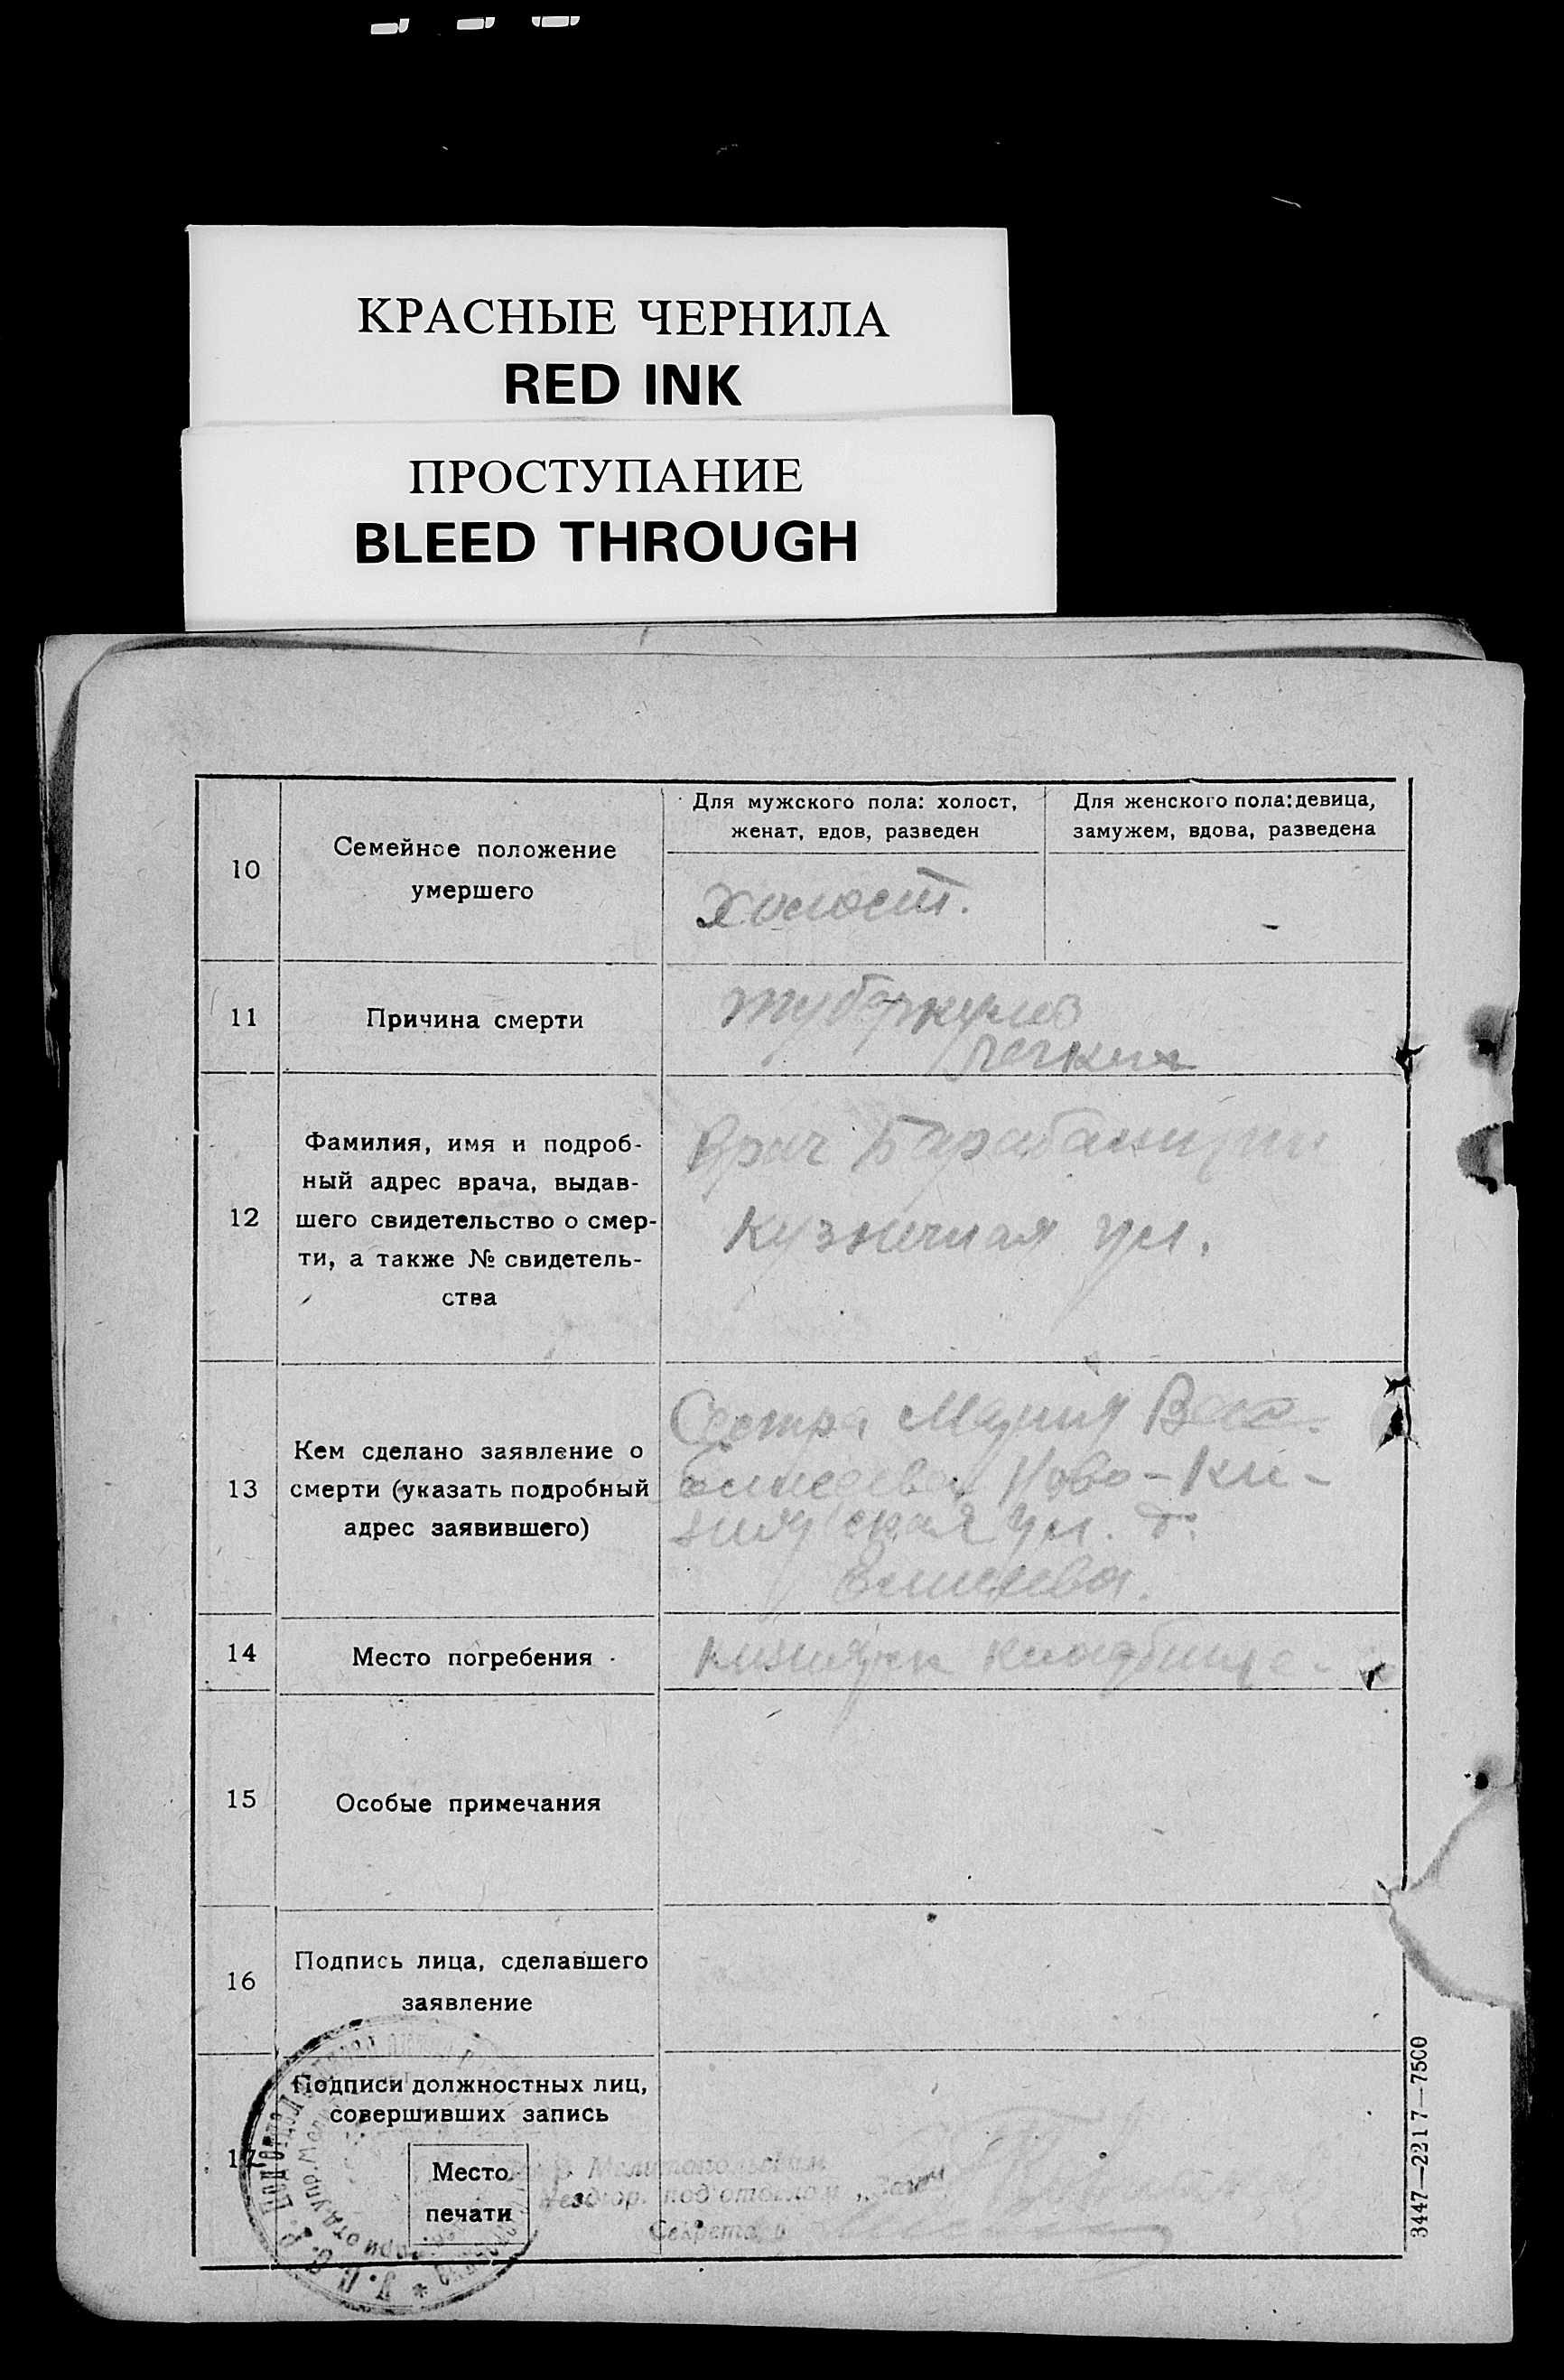 КРАСНЫЕ ЧЕРНИЛА
RED INK
ПРОСТУПАНИЕ
BLEED THROUGH
10
Семейное положение
умершего
Для мужского пола: холост,
женат, вдов, разведен
Для женского пола: девица,
замужем, вдова, разведена
холост.
-
11
Причина смерти
туберкулез
легких
12
Фамилия, имя и подроб-
ный адрес врача, выдав-
шего свидетельство о смер-
ти, а также № свидетель-
ства
Врач
Кузнечная ул.
13
Кем сделано заявление о
смерти (указать подробный
адрес заявившего)
Сестра Мария Вас.
Ново-Ки-
ул. д.
14
Место погребения
кладбище
15
Особые примечания
16
Подпись лица, сделавшего
заявление
17
Подписи должностных лиц,
совершивших запись
Место
печати
Мелитопольским
под'отделом
Секрета
3447—2217—7500